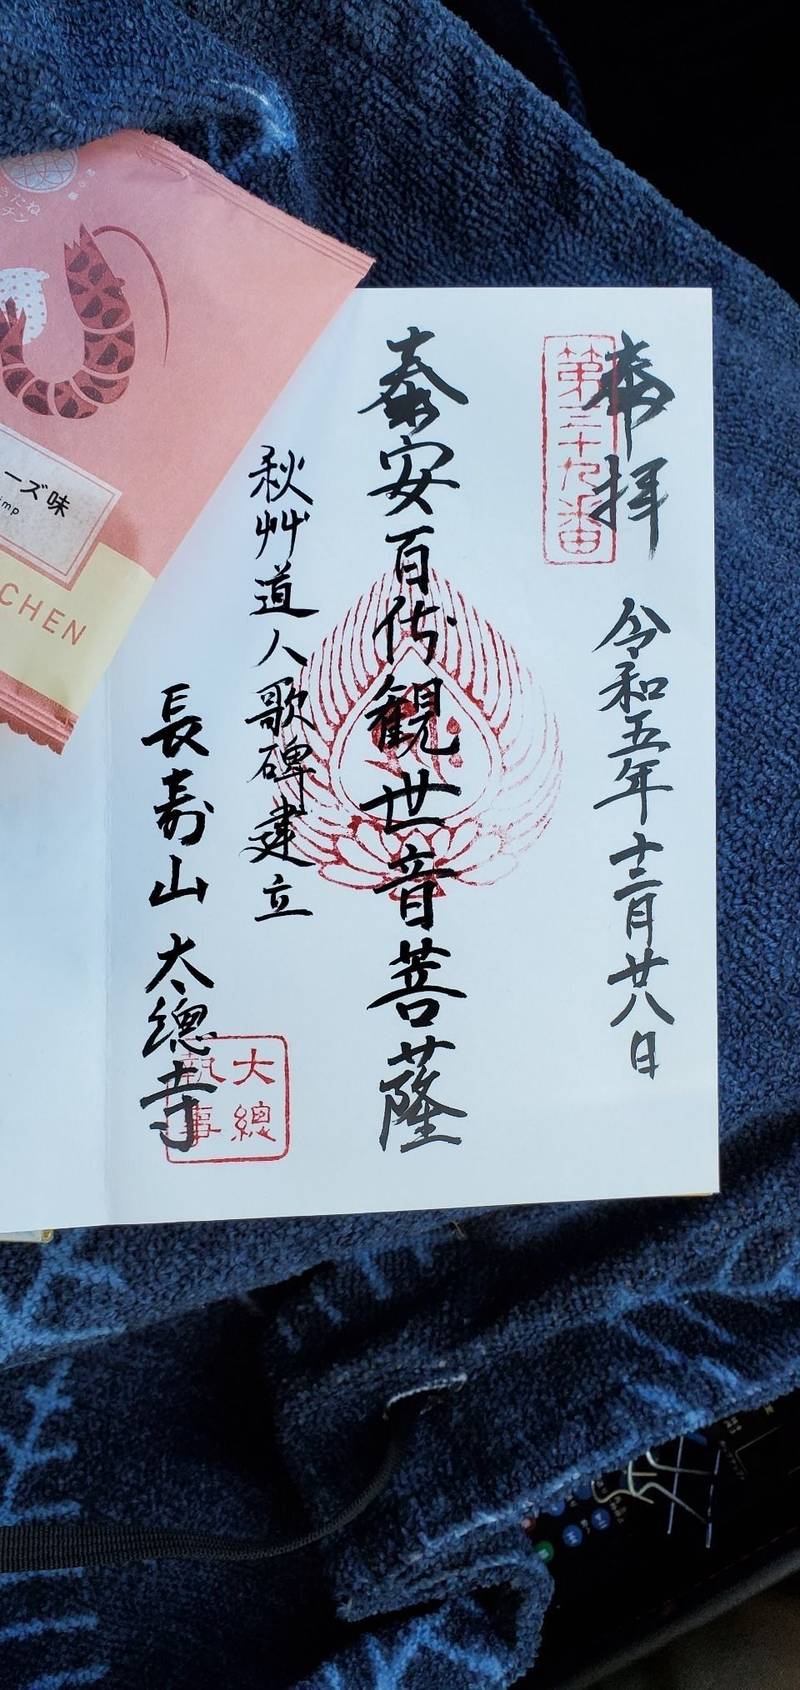 奉拝 令和五年十二月廿八日
第三十九番
泰安百体観世音菩薩
秋艸道人歌碑建立
長寿山 大總寺
大總
執事
きたね
チン
ーズ味
imp
CHEN